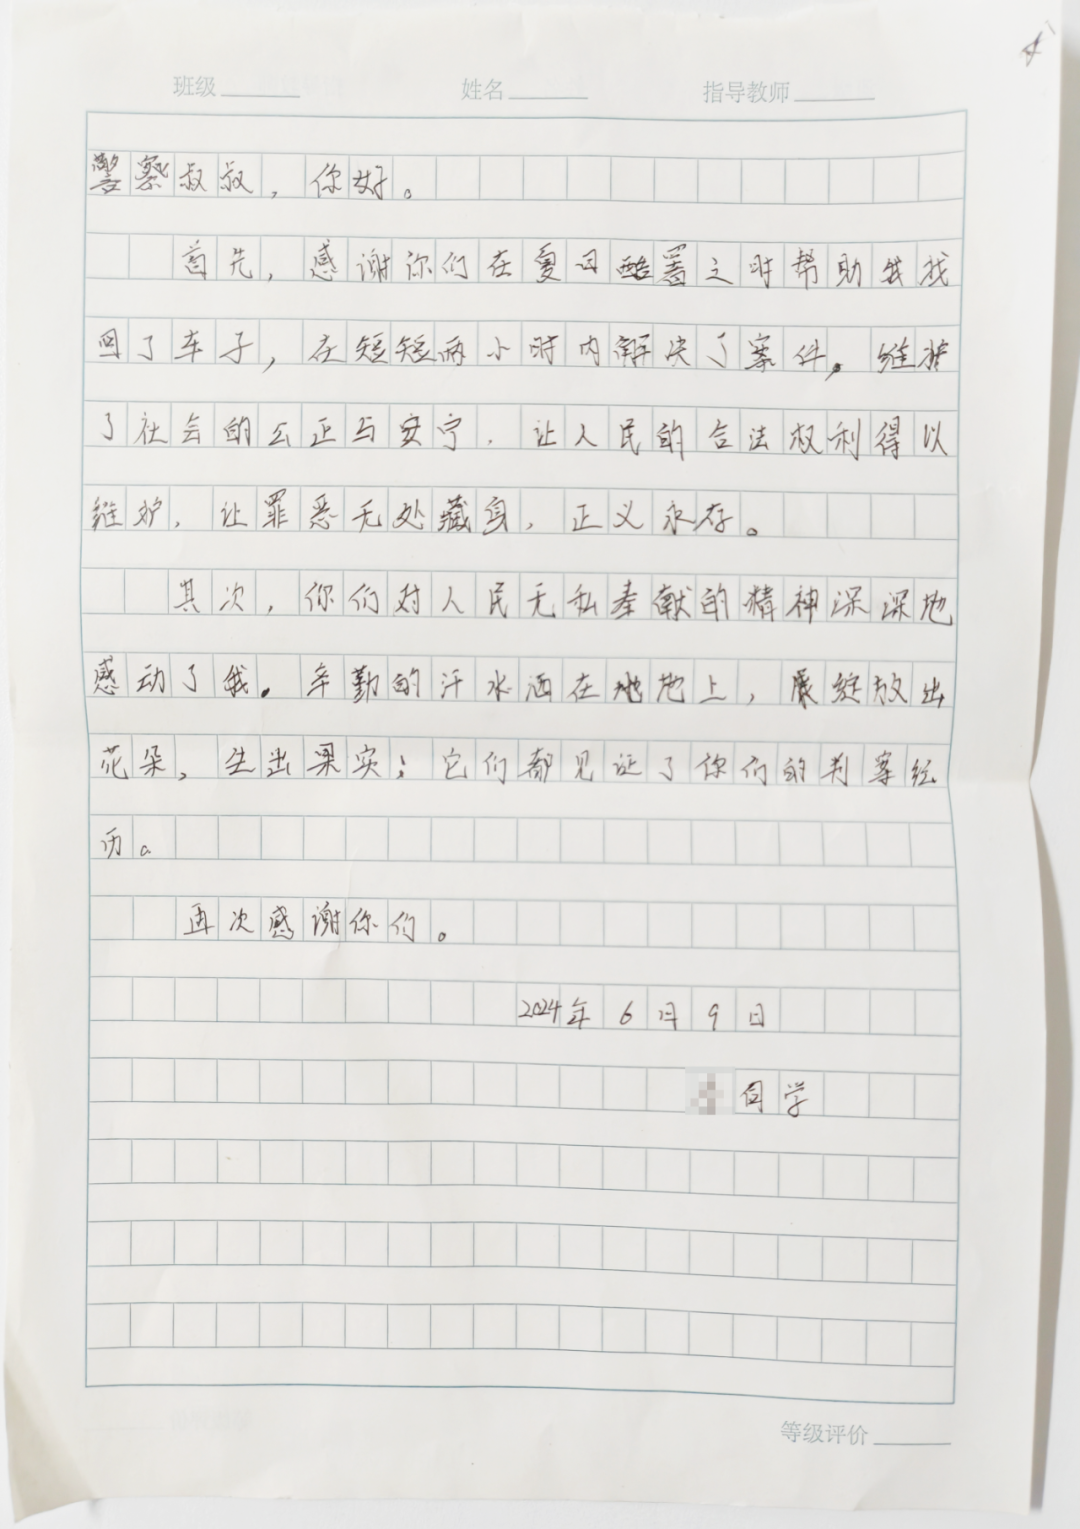 班级 姓名 指导教师
警察叔叔，你好。
首先，感谢你们在夏日酷暑之时帮助我找
回了车子，在短短两小时内解决了案件，维护
了社会的公正与安宁，让人民的合法权利得以
维护，让罪恶无处藏身，正义永存。
其次，你们对人民无私奉献的精神深深地
感动了我。辛勤的汗水洒在地上，绽放出
花朵，生出果实；它们都见证了你们的判案经
历。
再次感谢你们。
2024年6月9日
同学
等级评价